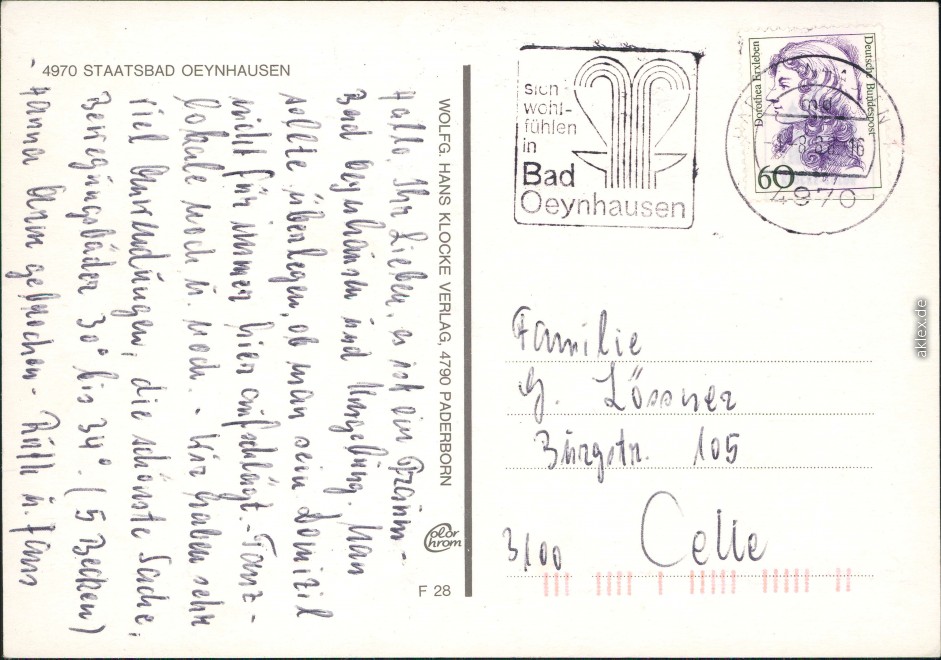 4970 STAATSBAD OEYNHAUSEN
Hallo, Ihr Lieben, es ist ein
Bad Oeynhausen und Umgebung. Man
sollte überlegen, ob man sein Domizil
nicht für immer hier aufschlägt. - Tanz-
lokale noch u. noch. - Wir haben sehr
viel Anwendungen, die schönste Sache,
Bewegungsbäder 30° bis 34°. (5 Becken)
Hanna Arm gebrochen - Ruth u. Hans
WOLFG. HANS KLOCKE VERLAG, 4790 PADERBORN
Color
Chrom
F 28
sich
wohl-
fühlen
in
Bad
Oeynhausen
Dorothea Erxleben
Deutsche Bundespost
60
4970
Familie
G. Lössner
Burgstr. 105
3100 Celle
aklex.de